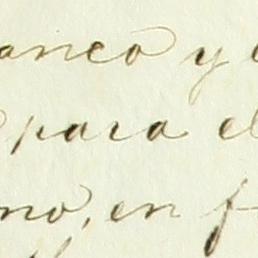 anco y
para el
no, en